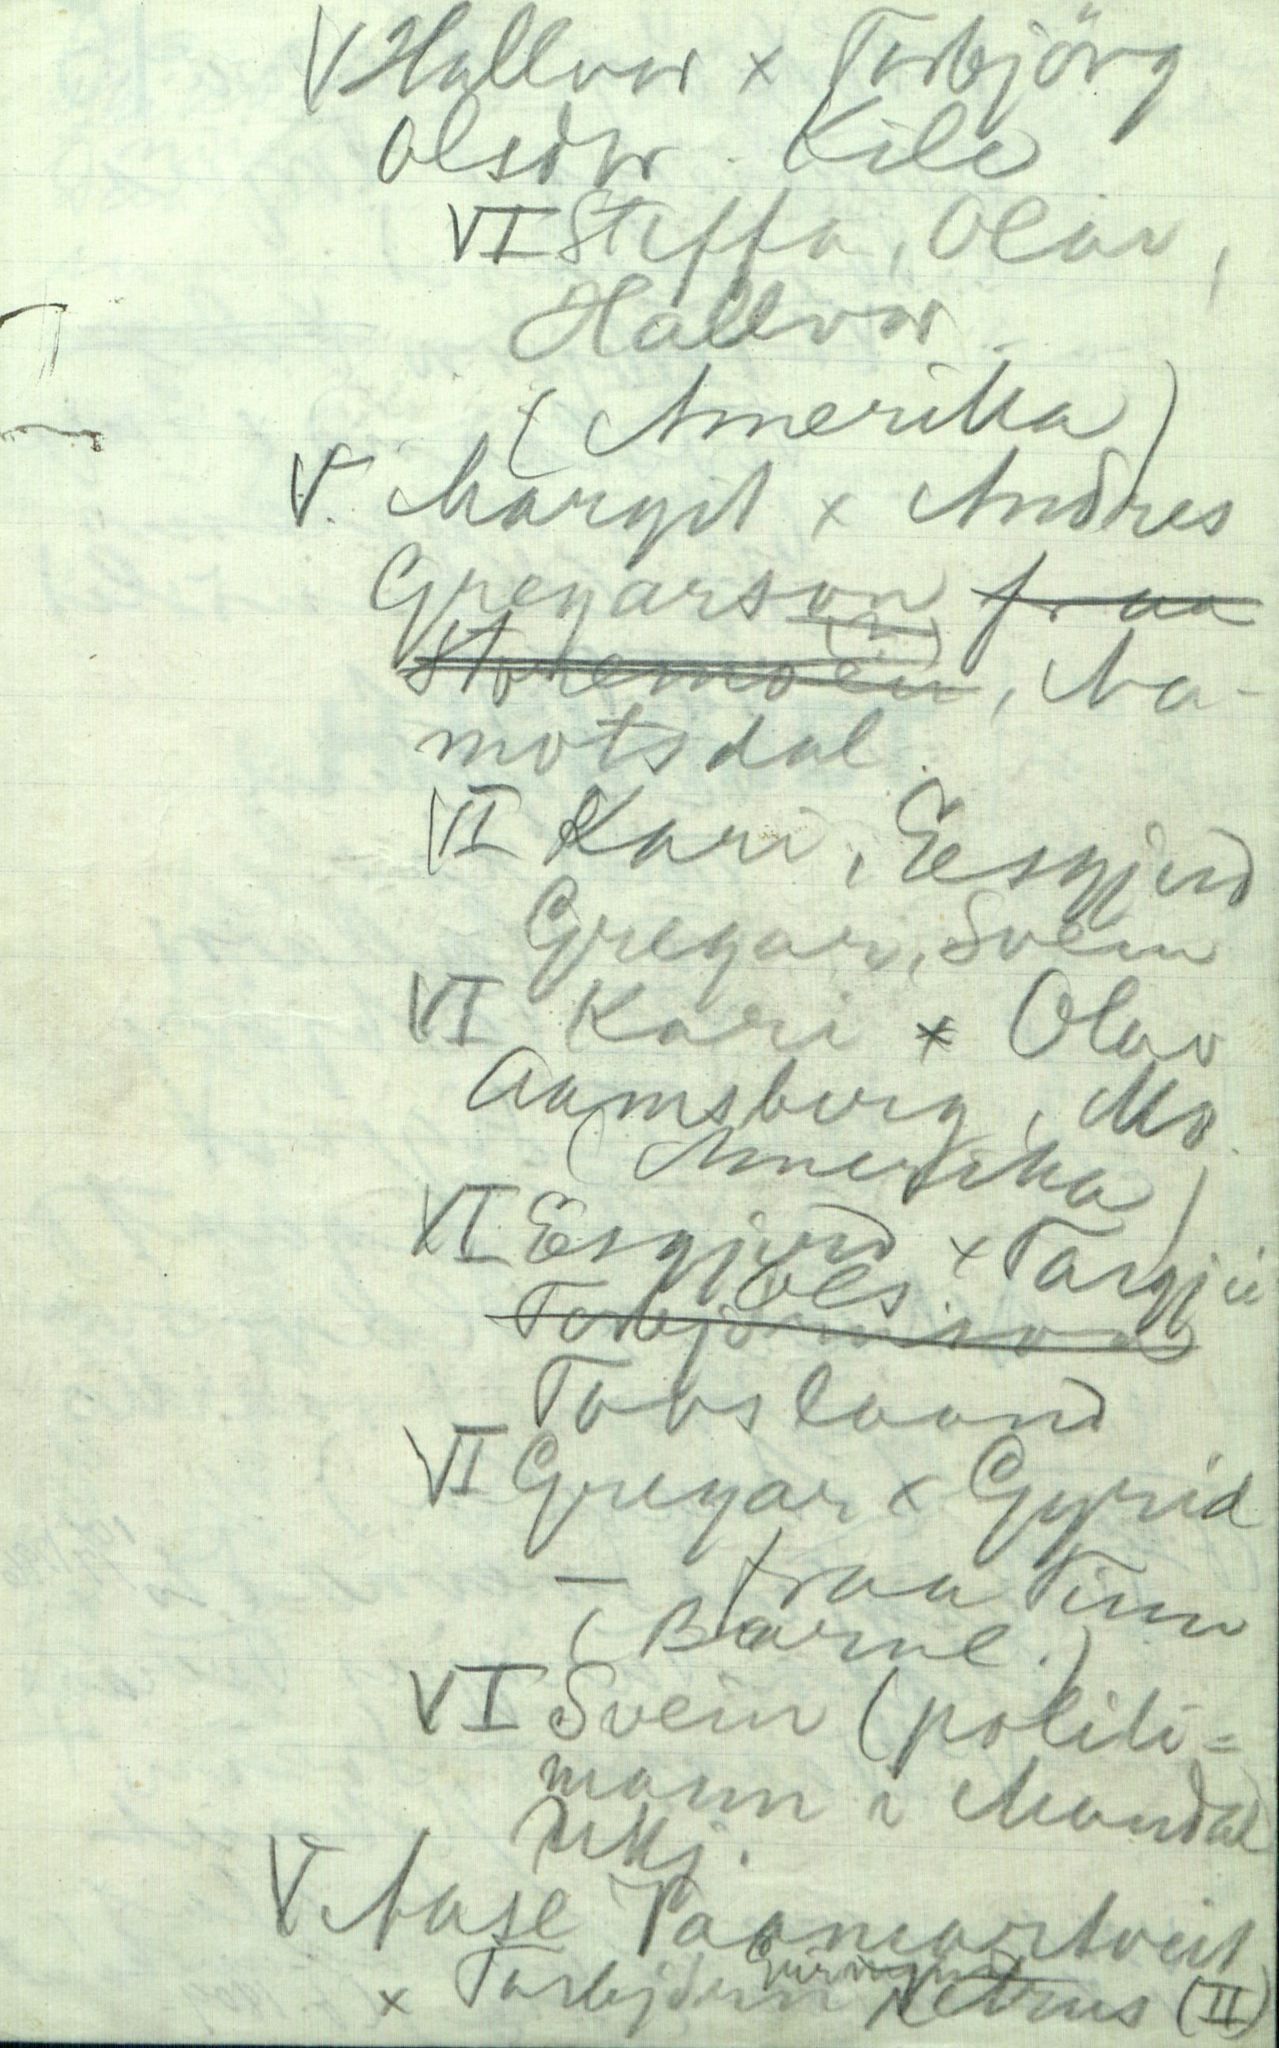 V Hallvor x Torbjörg
Olsdtr. Kile
VI Steffa, Olav,
Hallvor.
(Amerika)
V. Margit x Andres
Gregarson fraa
Storemoen, Aa-
motsdal.
VI Kari, Eesgjerd
Gregar, Svein
VI Kari x Olav
Aamsberg, Mo.
(Amerika)
VI Eesgjerd x Targjei
Ols
Torbjörnson
Taasland
VI Gregar x Gyrid
— fraa Tinn
(Barnl.)
VI Svein (politi=
mann i Mandal
Ukj.
V Aase Paamartveit
x Torbjörn Netrus (II)